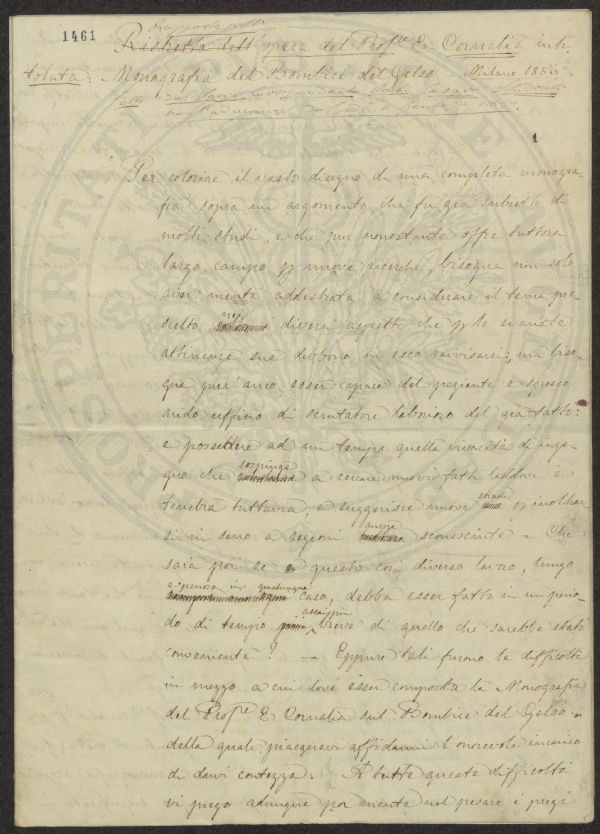 1461
Rapporto sull'
Ristretto dell'opera del Prof.re E. Cornalia inti
tolata: Monografia del Bombice del Gelso. Milano 1856
1
Per colorire il vasto disegno di una completa monogra
fia sopra un argomento che fu già subietto di
molti studi, e che pur nonostante offre tuttora
largo campo p nuove ricerche, bisogna non solo
aver mente addestrata a considerare il tema pre
scelto nei diversi aspetti che p le svariate
attinenze sue debbono in esso ravvisarsi; ma biso
gna pur anco esser capace del paziente e spesso
arido ufficio di scrutatore laborioso del già fatto:
e possedere ad un tempo quella vivacità di inge
gno che sospinge a cercare nuovi fatti laddove è
tenebra tuttavia, e suggerisce nuove strade p inoltrar
si in seno a regioni ancora sconosciute - Che
sarà poi se a questo così diverso lavoro, lungo
e penoso in qualunque caso, debba esser fatto in un perio
do di tempo assai più breve di quello che sarebbe stato
conveniente? - Eppure tali furono le difficoltà
in mezzo a cui dové esser composta la Monografia
del Prof.re E. Cornalia sul Bombice del Gelso
della quale piacquevi affidarmi l'onorevole incarico
di darvi contezza. A tutte queste difficoltà
vi prego adunque por mente nel pesare i pregi